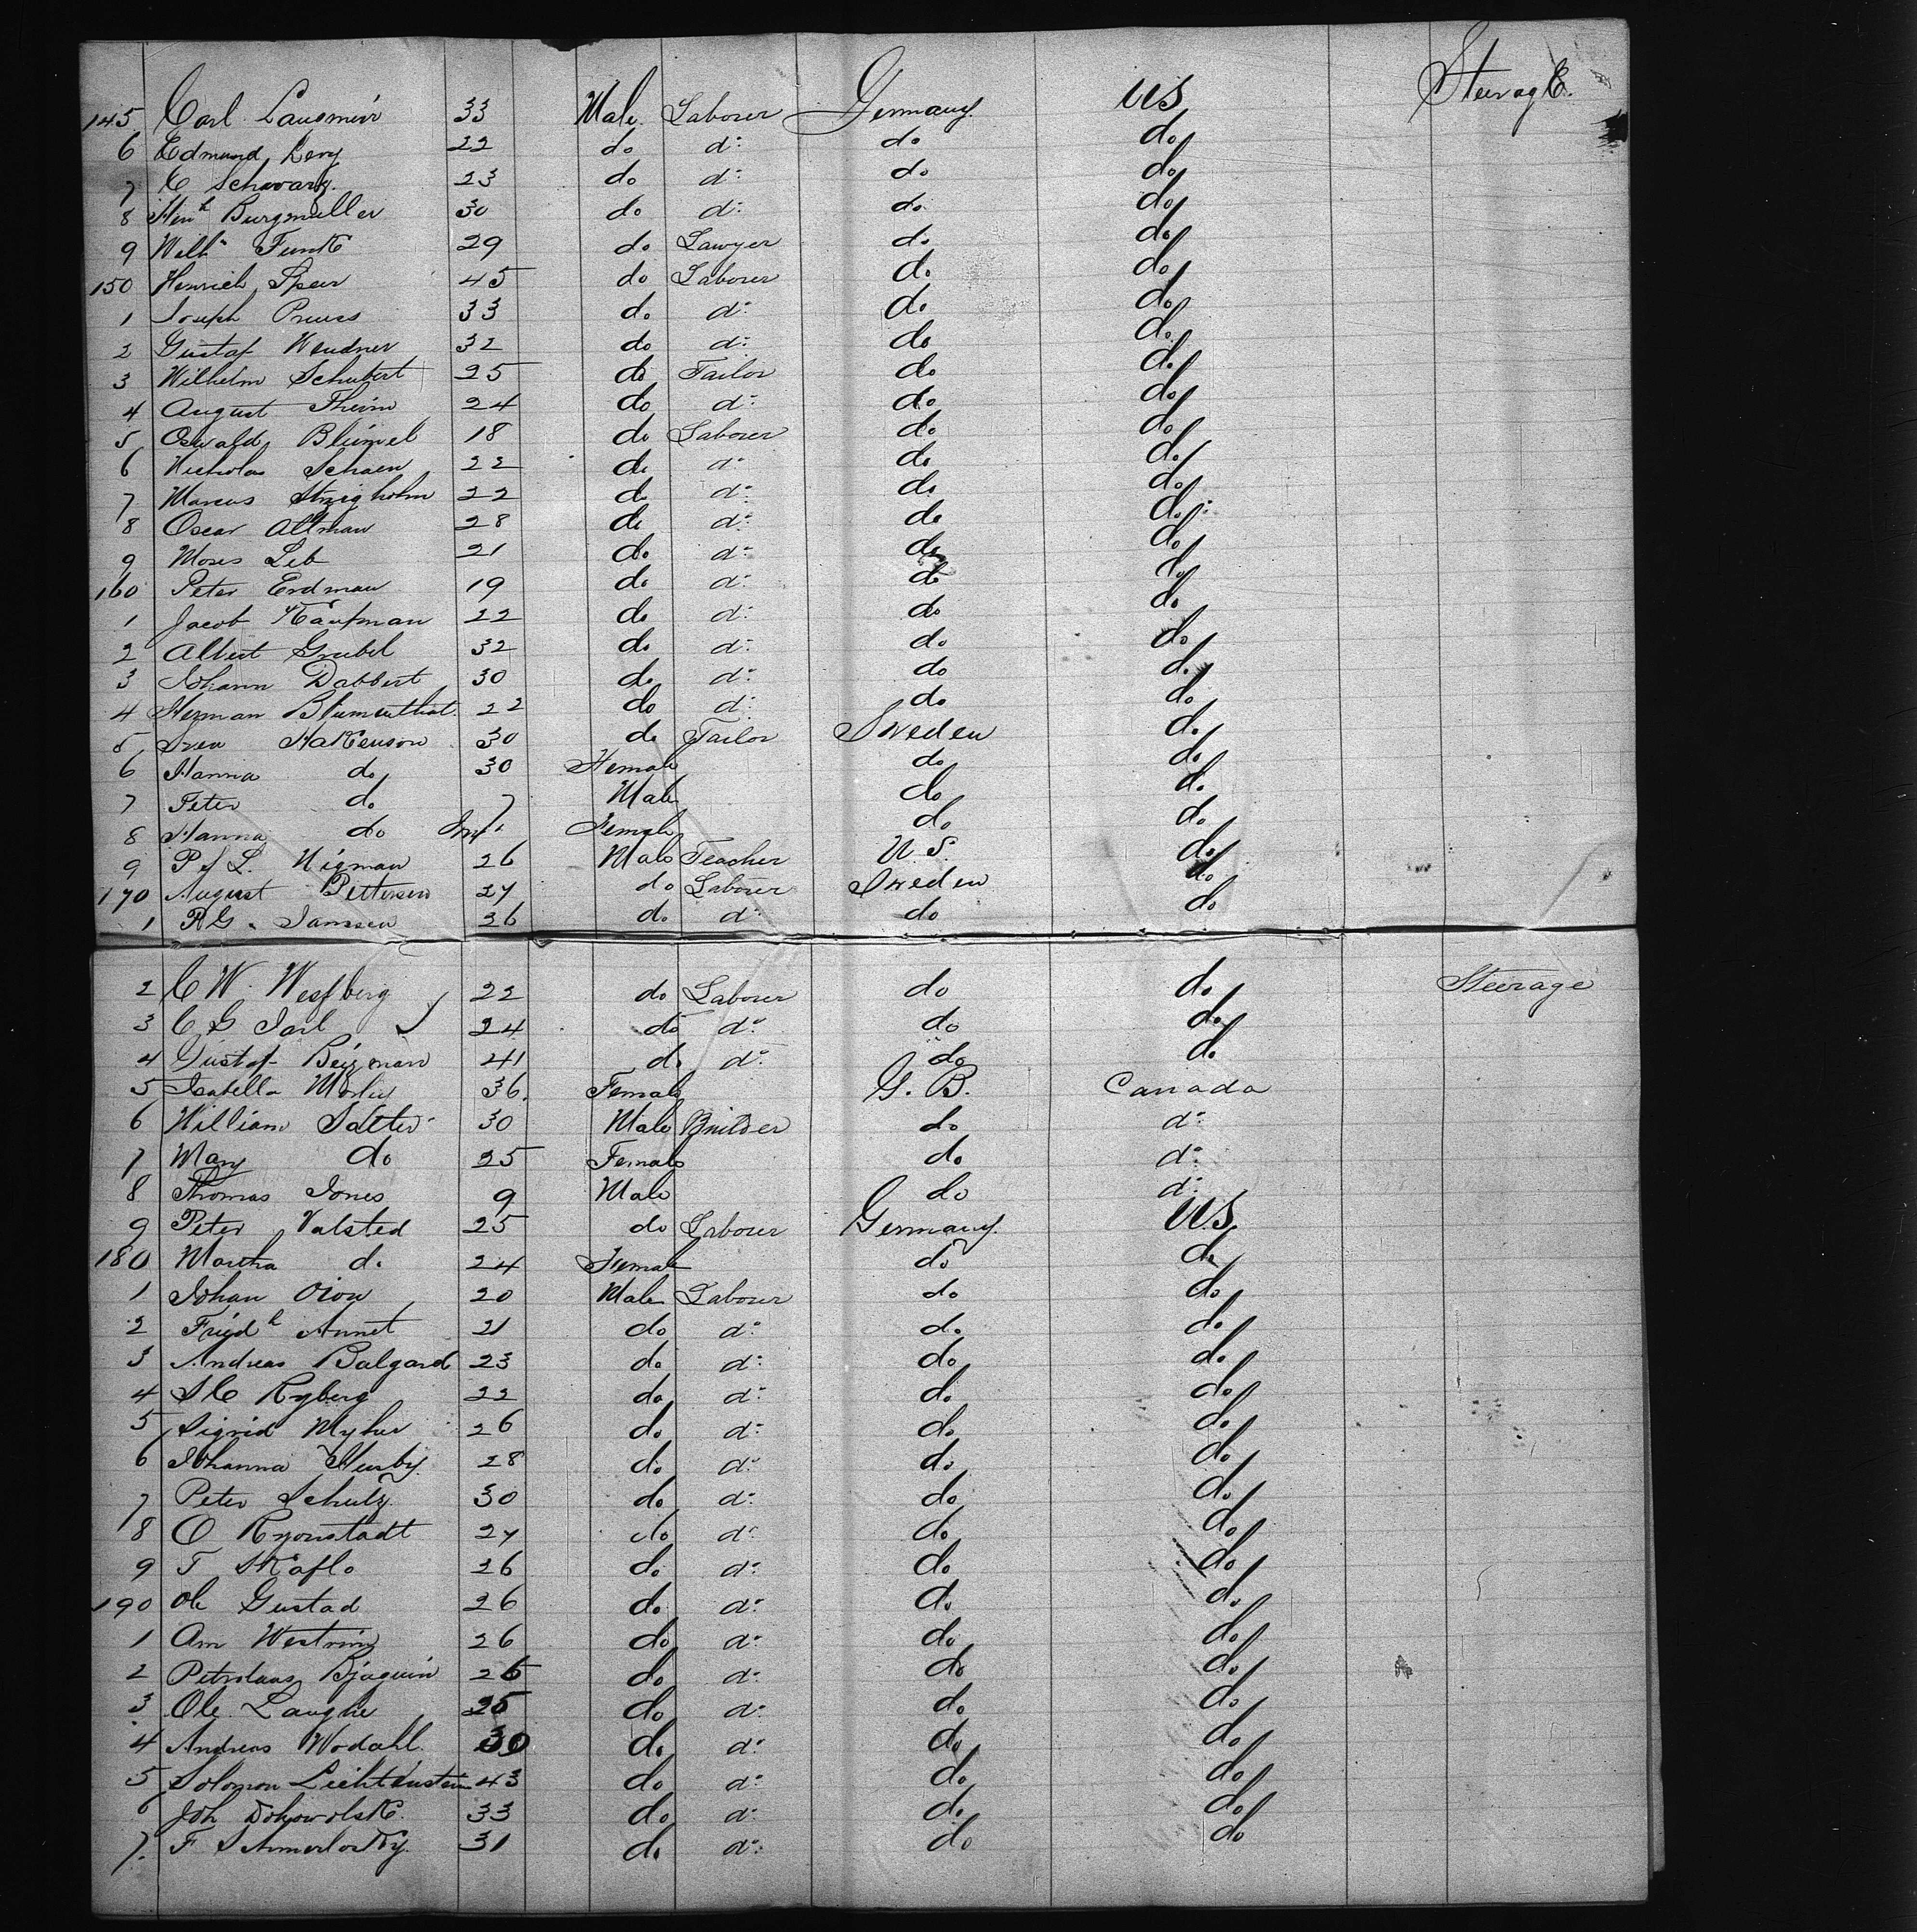 145 Carl Langmeir 33 Male Laborer Germany US Steerage.
6 Edmund Levy 22 do do do do
7 C Schwarz. 23 do do do do
8 Hinh Burgmuller 30 do do do do
9 Wilh Funk 29 do Lawyer do do
150 Henrich Speer 45 do Laborer do do
1 Joseph Preuss 33 do do do do
2 Gustaf Wendner 32 do do do do
3 Wilhelm Schubert 25 do Tailor do do
4 August Theim 24 do do do do
5 Oswald Blümel 18 do Laborer do do
6 Nicholas Schaen 22 do do do do
7 Marcus 22 do do do do
8 Oscar Altman 28 do do do do
9 Moses Leb 21 do do do do
160 Peter Erdman 19 do do do do
1 Jacob Kaufman 22 do do do do
2 Albert Grubel 32 do do do do
3 Johann Dabbert 30 do do do do
4 Herman Blumenthal. 22 do do do do
5 Sven Hakenson 30 do Tailor Sweden do
6 Hanna do 30 Female do do
7 Peter do 7 Male do do
8 Hanna do Inft Female do do
9 P. L. Nigman 26 Male Teacher U.S. do
170 August Petterson 27 do Laborer Sweden do
1 R G. Janssen 26 do do do do
2 C W. Wesfberg 22 do Laborer do do Steerage
3 C G Jarl 24 do do do do
4 Gustaf 41 do do do do
5 Isabella Morley 36. Female G. B. Canada
6 William Salter 30 Male Builder do do
7 Mary do 25 Female do do
8 Thomas Jones 9 Male do do
9 Peter Valsted 25 do Laborer Germany. US.
180 Martha do 24 Female do do
1 Johan Oiow 20 Male Laborer do do
2 Friedh Annet 21 do do do do
3 Andreas Balgard 23 do do do do
4 S C Ryberg 22 do do do do
5 Sigrid Myhre 26 do do do do
6 Johanna Husby 28 do do do do
7 Peter Schulz. 30 do do do do
8 O Ryonstadt 27 do do do do
9 T Skaflo 26 do do do do
190 Ole Gustad 26 do do do do
1 Am Westring 26 do do do do
2 Bjaquin 26 do do do do
3 Ole Laughe 25 do do do do
4 Andreas Wodahl. 30 do do do do
5 Solomon Lichtenstein 43 do do do do
6 Joh Dokowolsk. 33 do do do do
7. F 31 do do do do